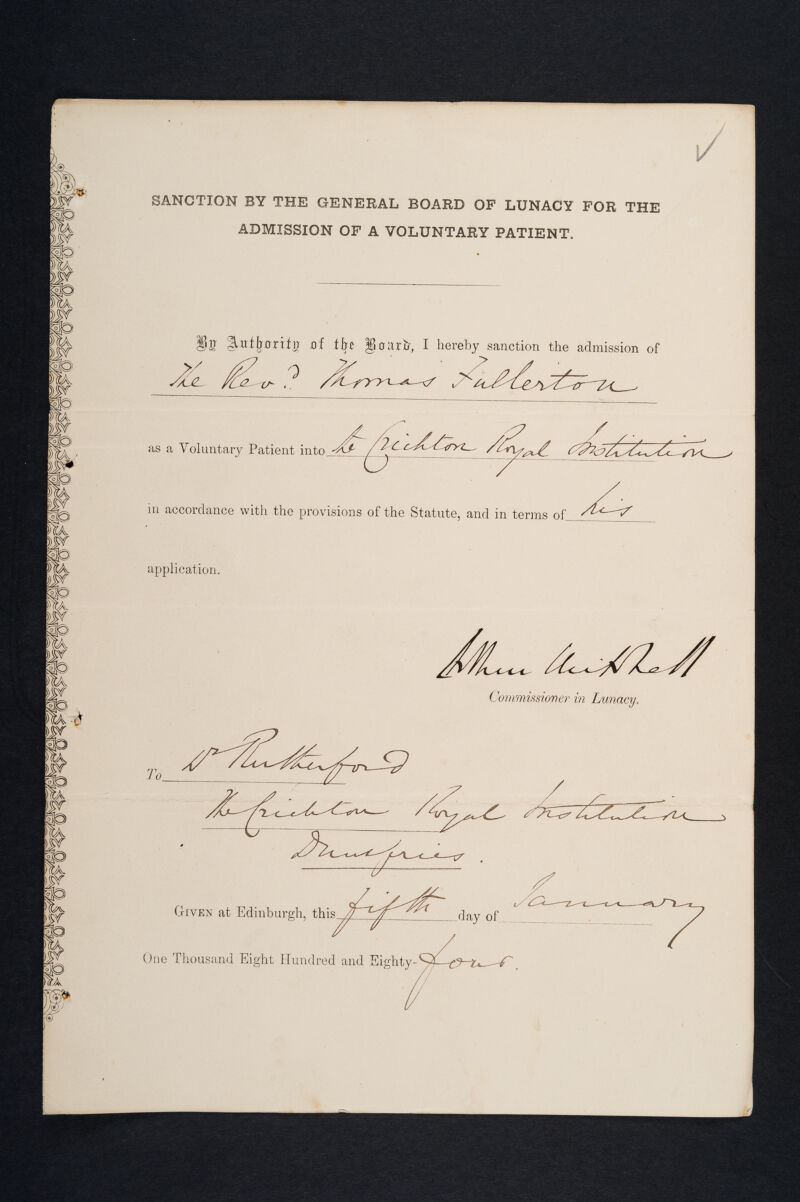 SANCTION BY THE GENERAL BOARD OF LUNACY FOR THE
ADMISSION OF A VOLUNTARY PATIENT.
By Authority of the Board, I hereby sanction the admission of
The Revd. Thomas Fullerton
as a Voluntary Patient into the Crichton Royal Institution
in accordance with the provisions of the Statute, and in terms of his
application.
Arthur Mitchell
Commissioner in Lunacy.
To Dr Rutherford
The Crichton Royal Institution
Dumfries.
GIVEN at Edinburgh, this fifth day of January
One Thousand Eight Hundred and Eighty-four.